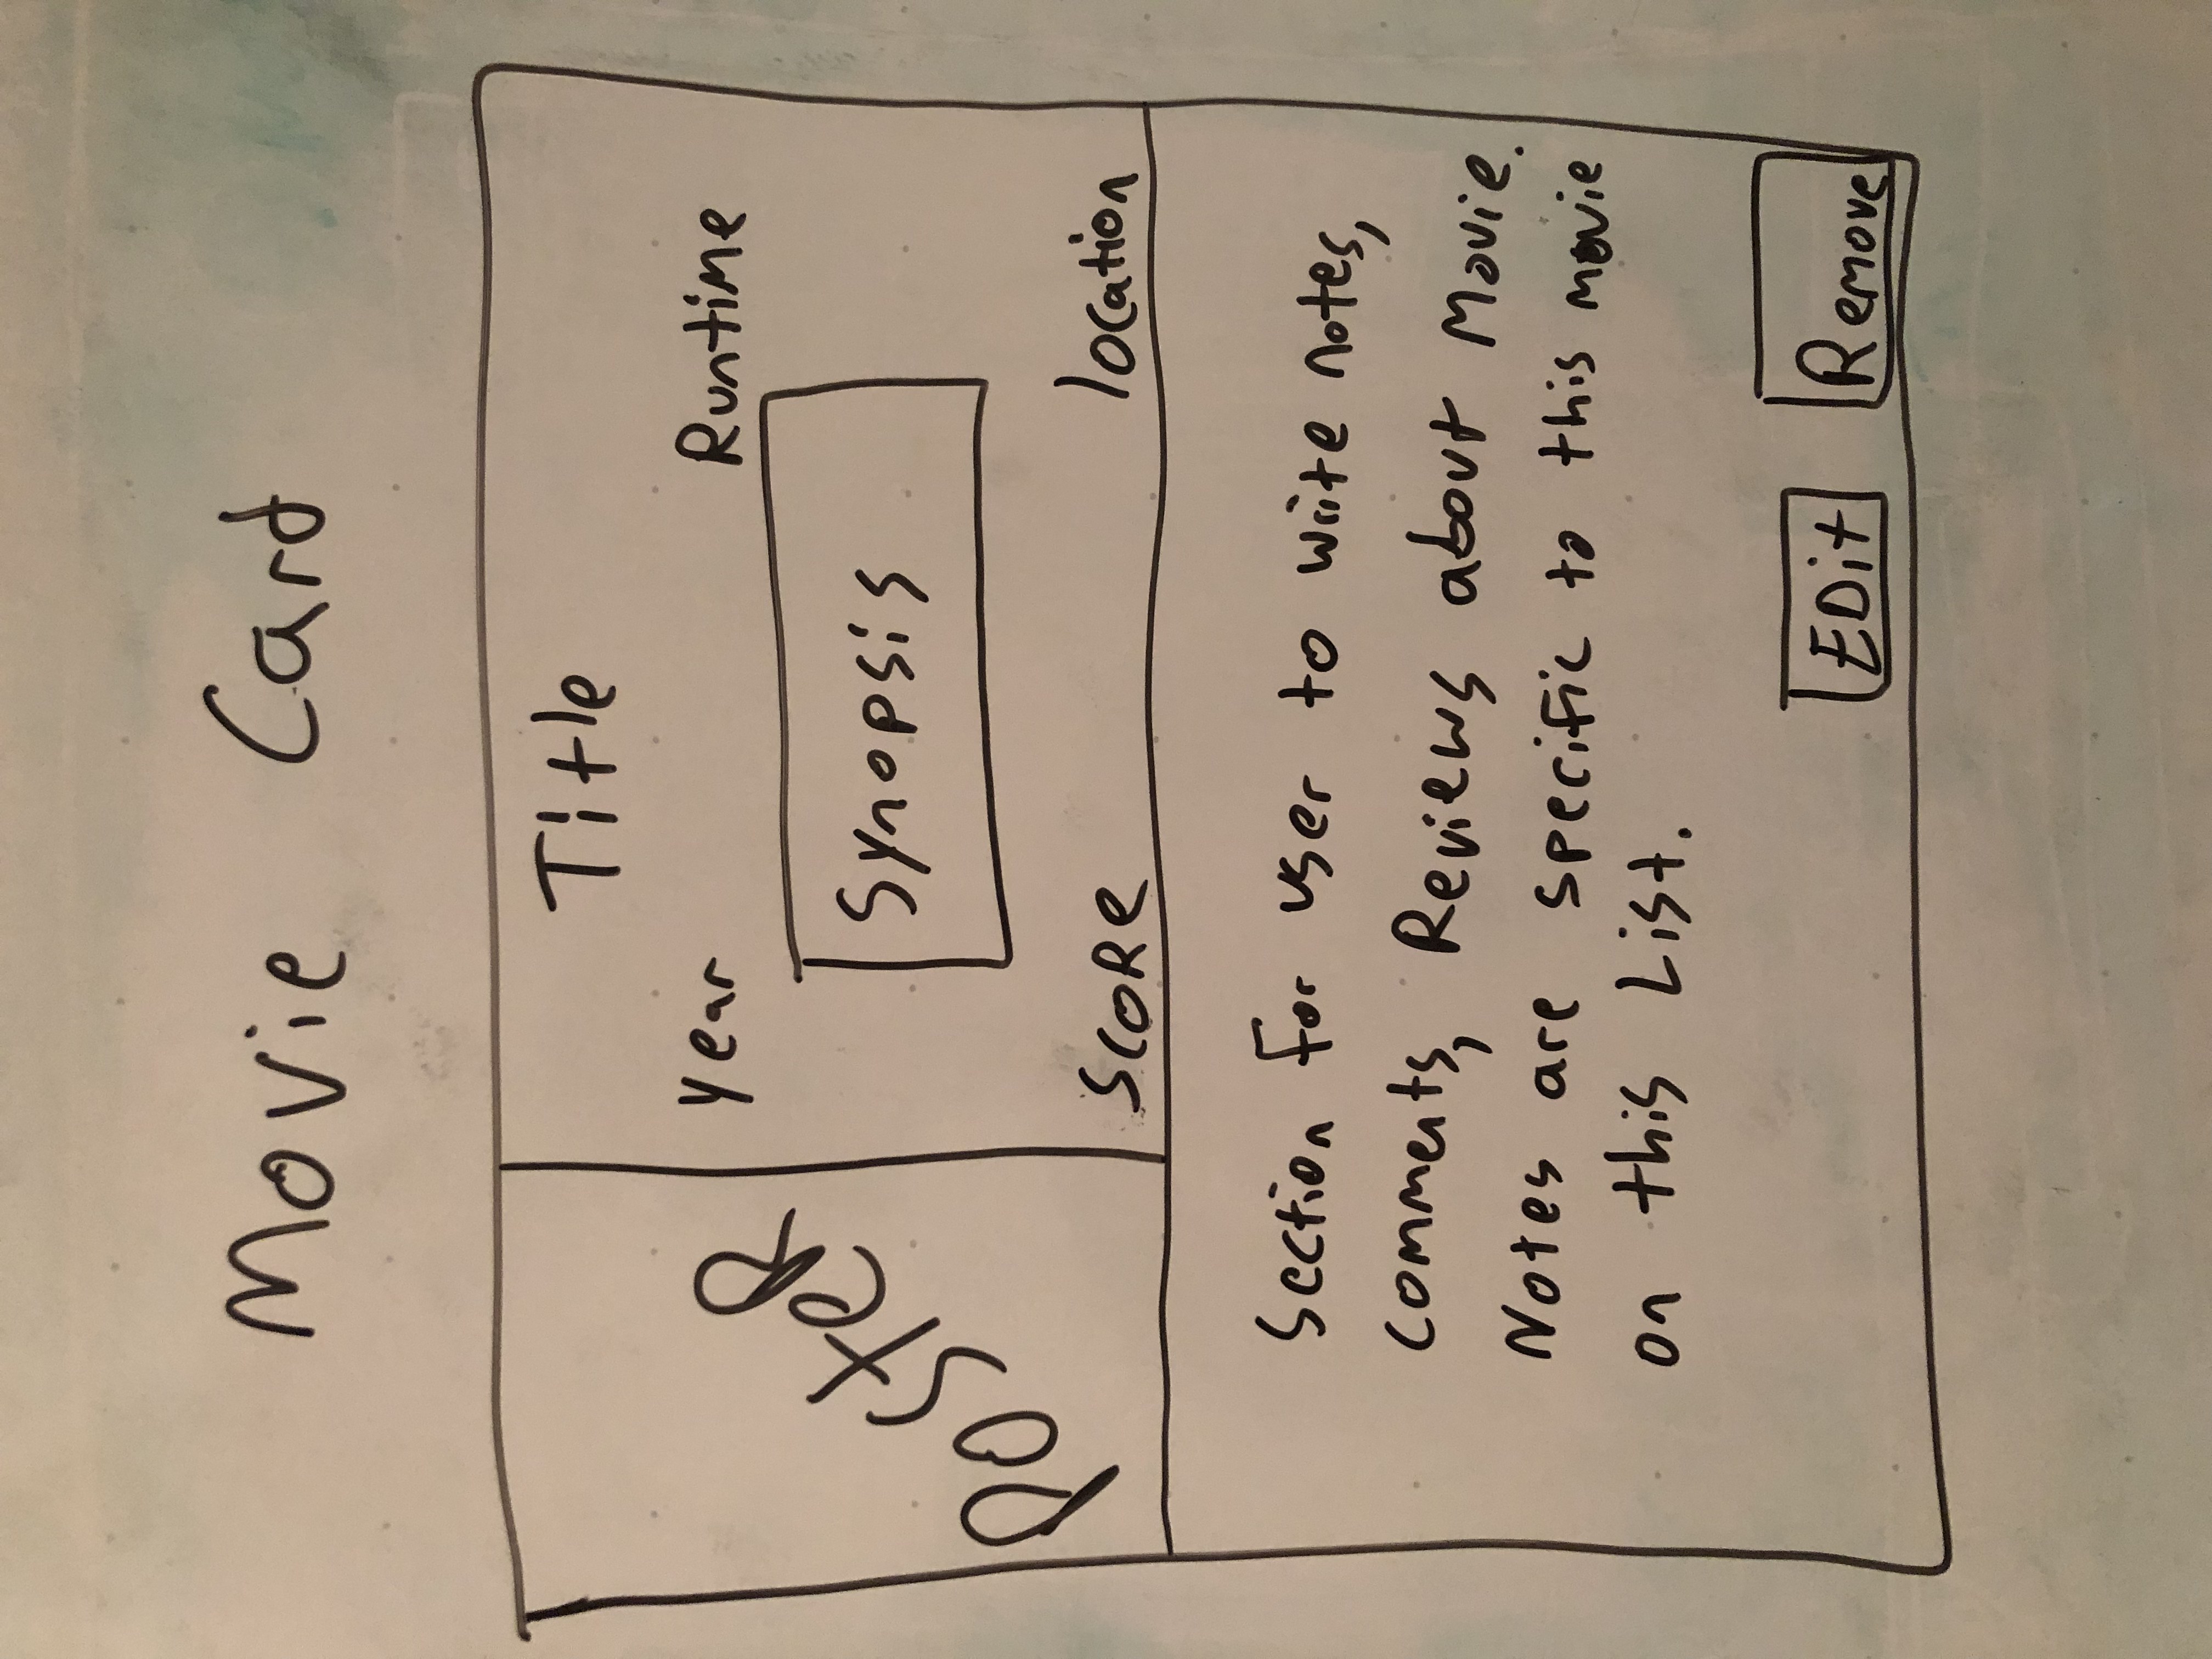 Movie Card
Title
Year
Runtime
PosteR
Synopsis
ScoRe
location
Section for user to write notes,
comments, Reviews about Movie.
Notes are specific to this movie
on this List.
EDit
Remove